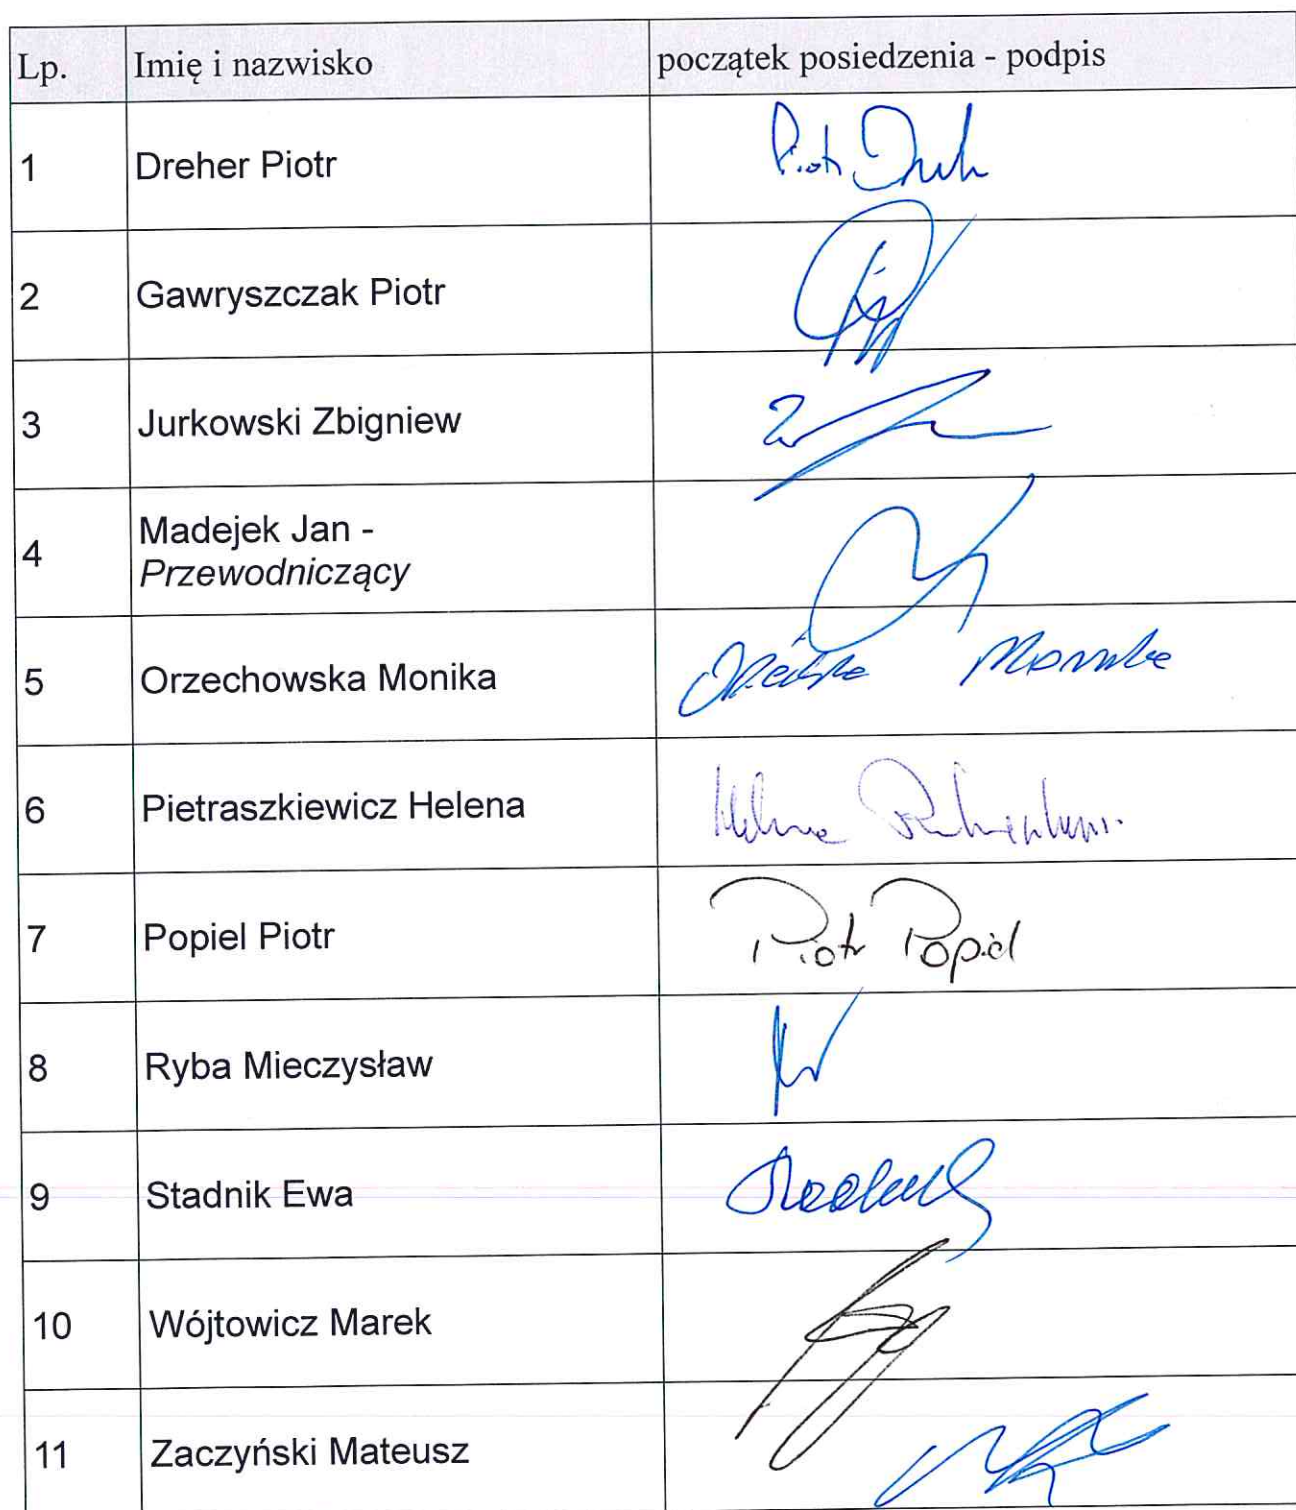 Lp. Imię i nazwisko początek posiedzenia - podpis
1 Dreher Piotr Piotr
2 Gawryszczak Piotr
3 Jurkowski Zbigniew
4 Madejek Jan -
Przewodniczący
5 Orzechowska Monika Monika
6 Pietraszkiewicz Helena Helena
7 Popiel Piotr Piotr Popiel
8 Ryba Mieczysław
9 Stadnik Ewa
10 Wójtowicz Marek
11 Zaczyński Mateusz